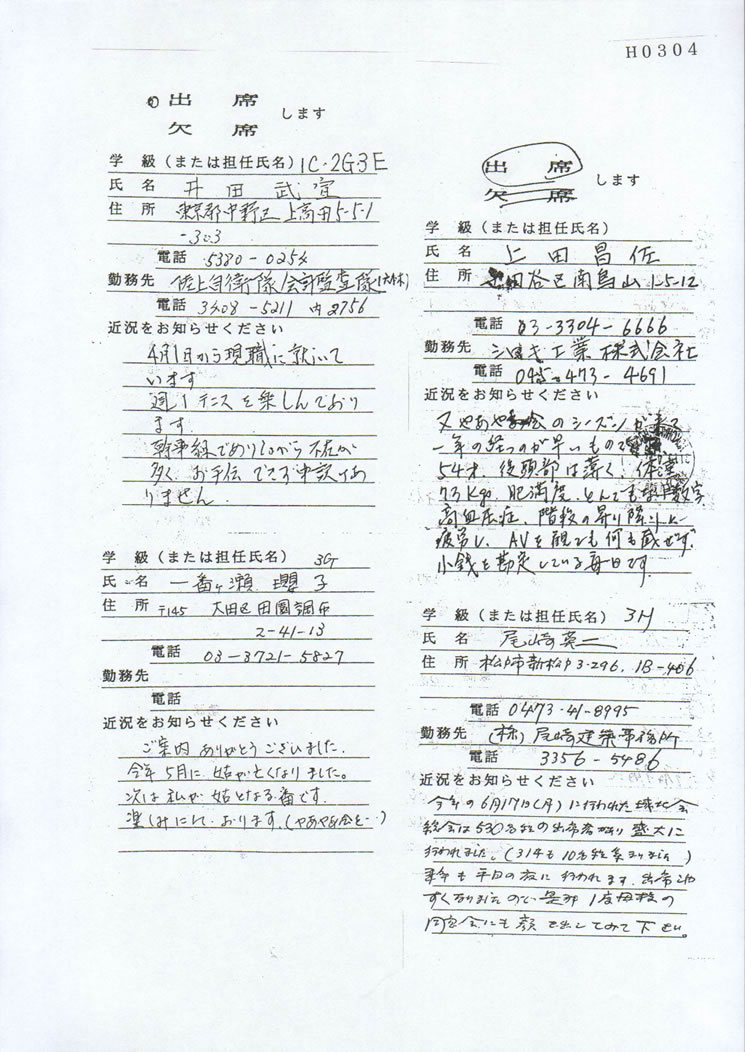 H0304
出席
欠席
します
学級(または担任氏名)1C・2G3E
氏名 井田武宣
住所 東京都中野区上高田5-5-1
-303
電話 5380-0254
勤務先 陸上自衛隊会計監査隊
電話 3408-5211 内2756
近況をお知らせください
4月1日から現職に就いて
います
週1テニスを楽しんでおり
ます
幹事録でありながら不在が
多く、お手伝できず申訳あ
りません.
学級(または担任氏名) 3G
氏名 一番ヶ瀬 瓔子
住所 〒145 大田区田園調布
2-41-13
電話 03-3721-5827
勤務先
電話
近況をお知らせください
ご案内ありがとうございました.
今年5月に、姑が亡くなりました。
次は私が姑となる番です.
楽しみにしております。(やあやあ会を…)
出席
欠席
します
学級(または担任氏名)
氏名 上田昌佐
住所 田谷区南烏山1-5-12
電話 03-3304-6666
勤務先 シロキ工業株式会社
電話 045-473-4691
近況をお知らせください
又やあやあ会のシーズンが来て
一年の経つのが早いもので
54才、後頭部は薄く、体重
73Kgo. 肥満度、とんでもない数字
高血圧症、階段の昇り降りに
疲労し、AVを観ても何も感ぜず、
小銭を勘定している毎日です.
学級(または担任氏名) 3H
氏名 尾崎英二
住所 松戸市新松戸3-296, 1B-406
電話 0473-41-8995
勤務先 (株)尾崎建築事務所
電話 3356-5486
近況をお知らせください
今年の6月17日(月)に行われた城北会
総会は530名程の出席者があり盛大に
行われました。(314も10名程集まりました)
来年も平日の夜に行われます。出席しや
すくなりましたので是非1度母校の
同窓会にも顔を出してみて下さい。